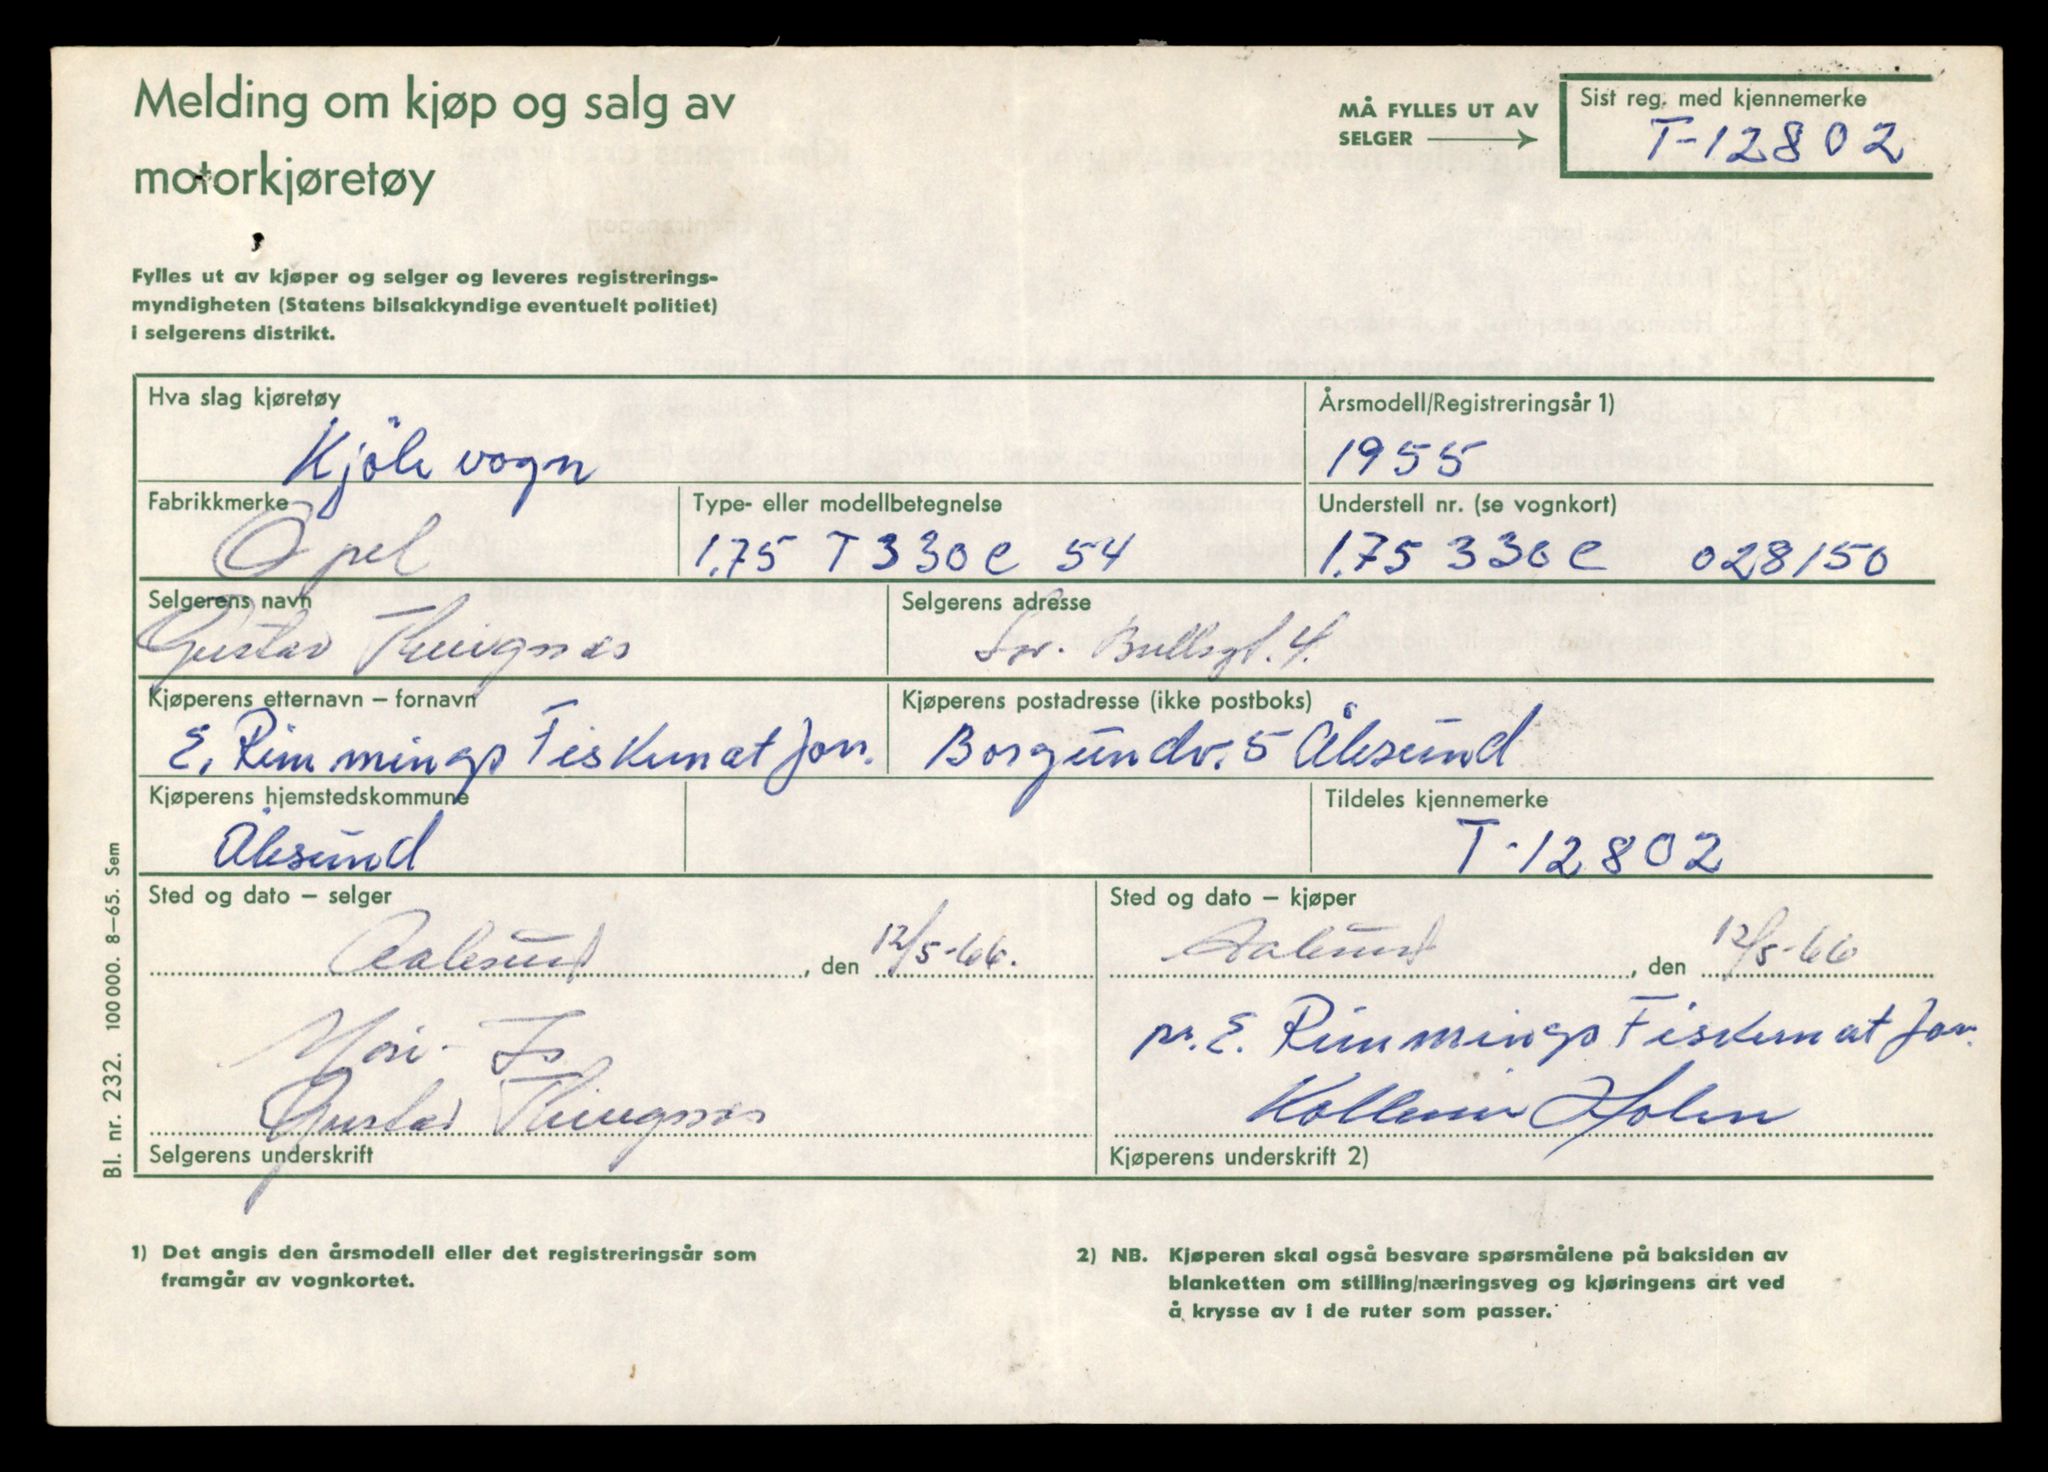 Melding om kjøp og salg av
motorkjøretøy
MÅ FYLLES UT AV
SELGER
Sist reg. med kjennemerke
T-12802
Fylles ut av kjøper og selger og leveres registrerings-
myndigheten (Statens bilsakkyndige eventuelt politiet)
i selgerens distrikt.
Hva slag kjøretøy
Kjöle vogn
Årsmodell/Registreringsår 1)
1955
Fabrikkmerke
Opel
Type- eller modellbetegnelse
1,75 T 330 C 54
Understell nr. (se vognkort)
1,75 330 C 028150
Selgerens navn
Gustav
Selgerens adresse
Bullsgt. 4.
Kjøperens etternavn – fornavn
E. Rimmings Fiskematforr.
Kjøperens postadresse (ikke postboks)
Borgundv. 5 Ålesund
Kjøperens hjemstedskommune
Ålesund
Tildeles kjennemerke
T-12802
Sted og dato – selger
Aalesund, den 12/5-66.
Sted og dato – kjøper
Aalesund, den 12/5-66
Is
Gustav
Selgerens underskrift
pr. E. Rimmings Fiskematforr.
Holen
Kjøperens underskrift 2)
Bl. nr. 232. 100 000. 8–65. Sem
1) Det angis den årsmodell eller det registreringsår som
framgår av vognkortet.
2) NB. Kjøperen skal også besvare spørsmålene på baksiden av
blanketten om stilling/næringsveg og kjøringens art ved
å krysse av i de ruter som passer.